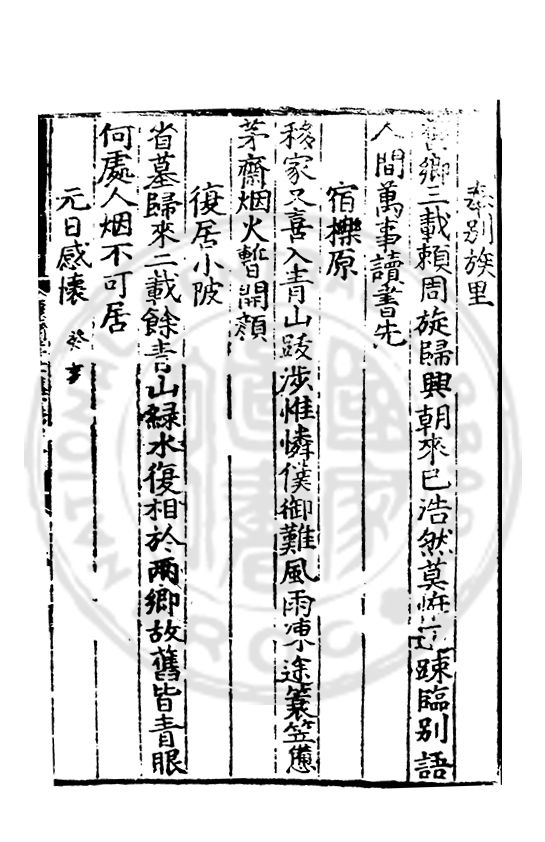 奉別族里
鄉三載賴周旋歸興朝來已浩然莫恠疎臨別語
人間萬事讀書先
宿櫟原
移家又喜入青山跋涉惟憐僕御難風雨凍途簑笠憊
茅齋烟火暫開顏
復居小陂
省墓歸來二載餘青山綠水復相於兩鄉故舊皆青眼
何處人烟不可居
元日感懷 癸亥